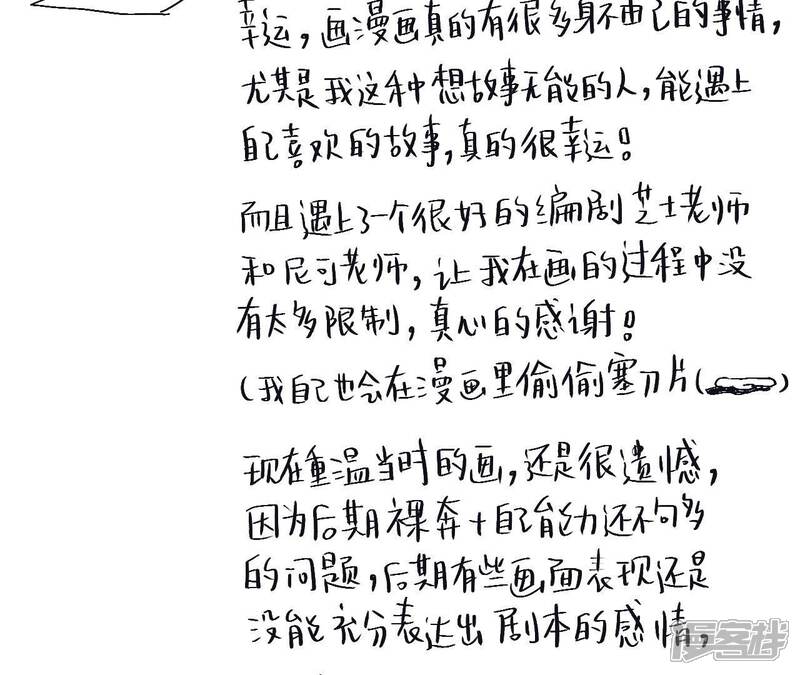 幸运，画漫画真的有很多身不由己的事情，
尤其是我这种想故事无能的人，能遇上
自己喜欢的故事，真的很幸运！
而且遇上了一个很好的编剧芝士老师
和尼可老师，让我在画的过程中没
有太多限制，真心的感谢！
（我自己也会在漫画里偷偷塞刀片（
）
现在重温当时的画，还是很遗憾，
因为后期裸奔+自己能力还不够
的问题，后期有些画面表现还是
没能充分表达出剧本的感情，
漫客栈